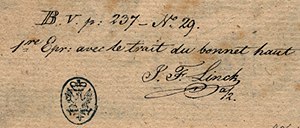 B. V. p: 237 – No. 29.
1re Epr: avec le trait du bonnet haut
J. F. Linck